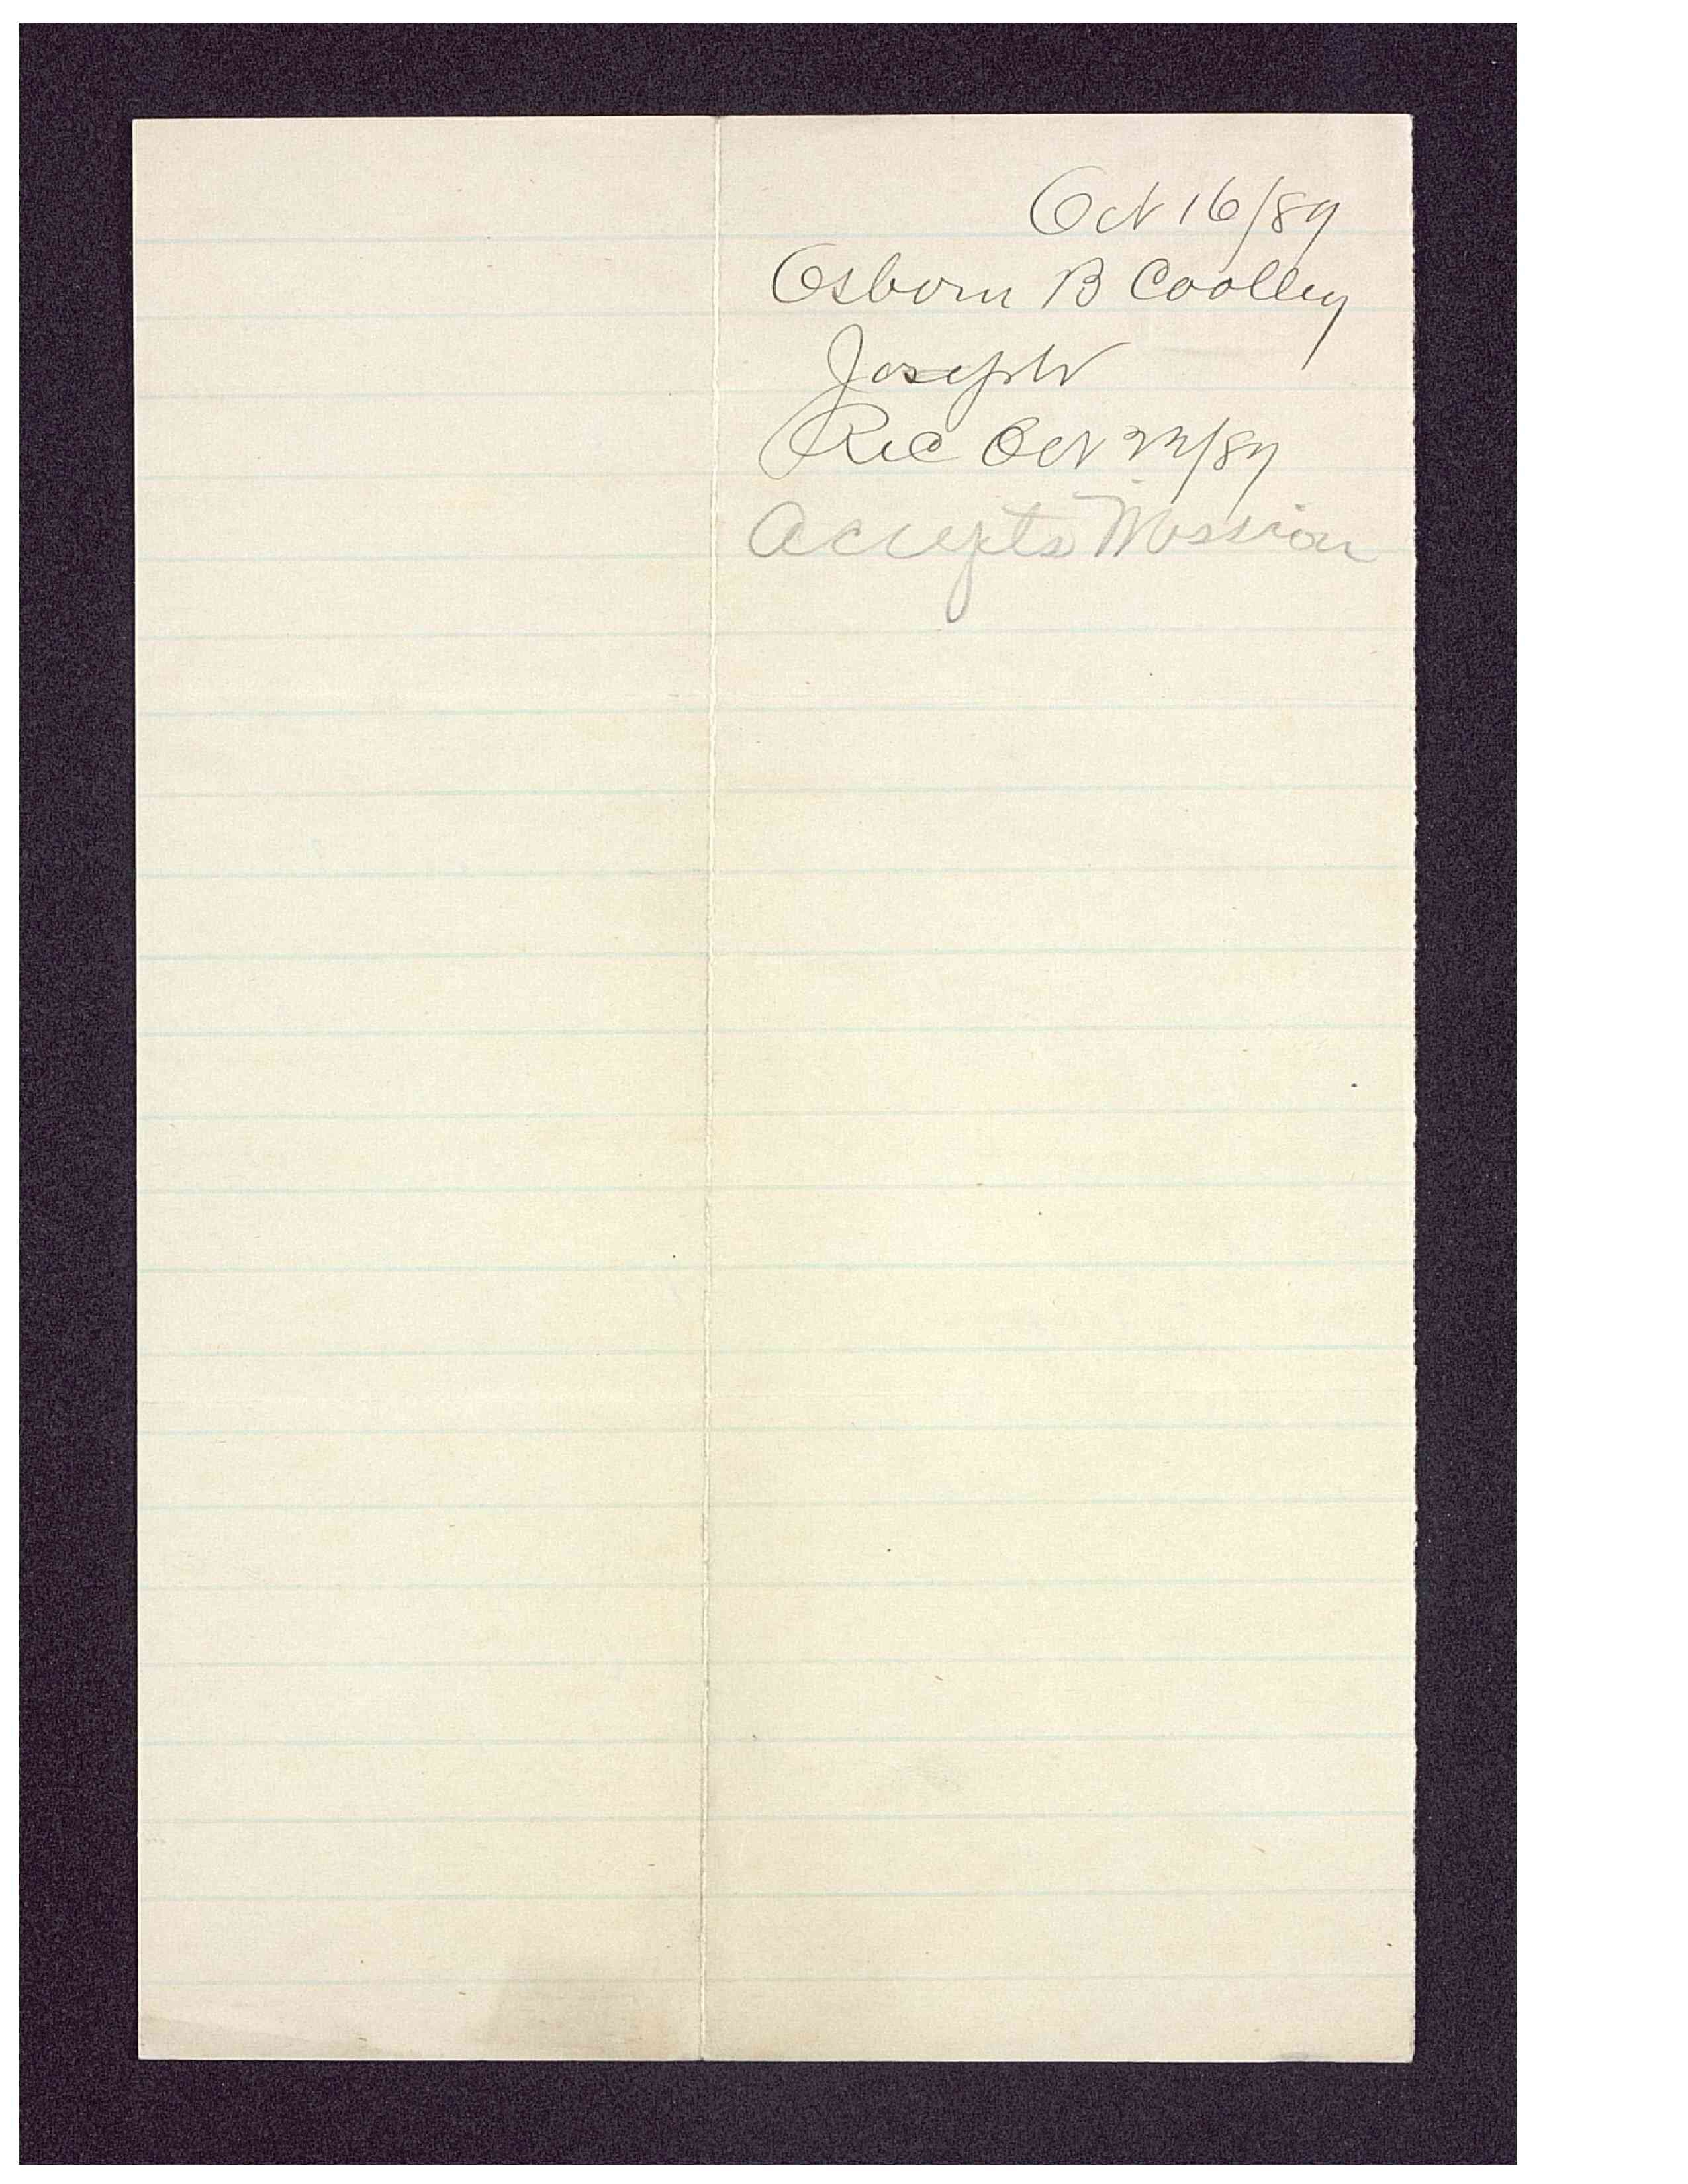 Oct 16/89
Osborn B Coolley
Joseph
Rec Oct 22/89
Accepts Mission